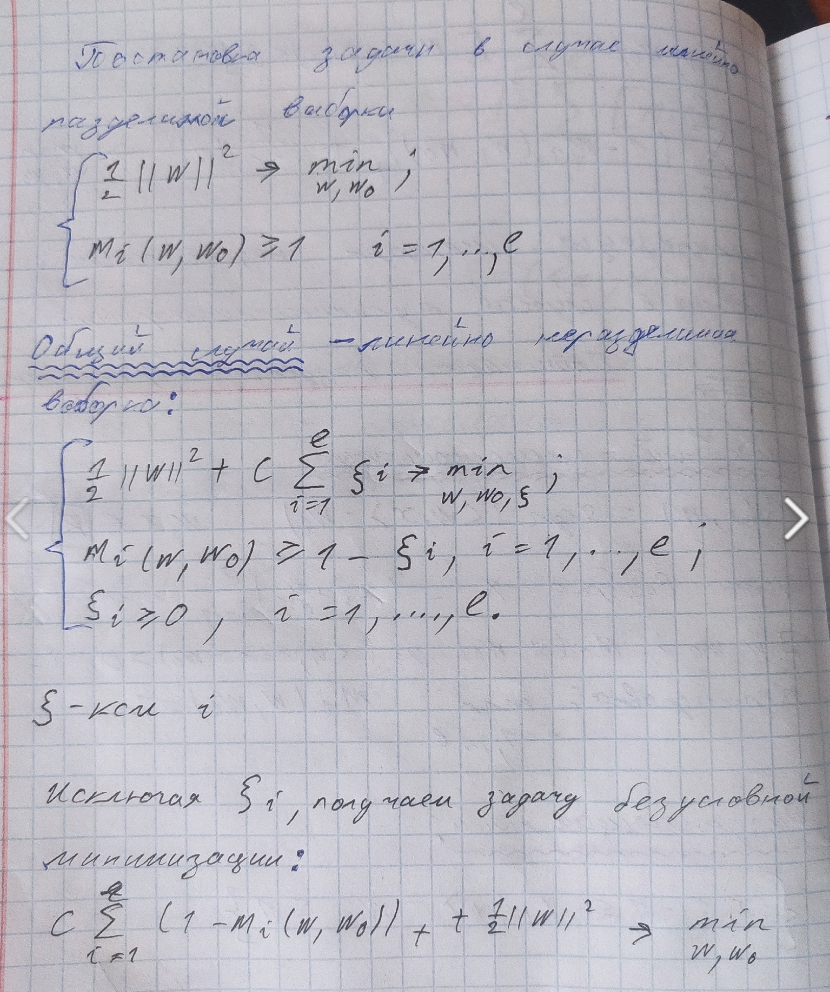 Постановка задачи в случае линейно
разделимой выборки
1/2 ||w||² → min w, w₀ ;
Mᵢ(w, w₀) ≥ 1 i = 1, ..., ℓ
Общий случай – линейно неразделимая
выборка:
1/2 ||w||² + C ∑ᵢ₌₁^ℓ ξᵢ → min w, w₀, ξ ;
Mᵢ(w, w₀) ≥ 1 – ξᵢ, i = 1, ..., ℓ ;
ξᵢ ≥ 0 , i = 1, ...., ℓ.
ξ - кси i
Исключая ξᵢ, получаем задачу безусловной
минимизации:
C ∑ᵢ₌₁^ℓ (1 – Mᵢ(w, w₀))₊ + 1/2 ||w||² → min w, w₀